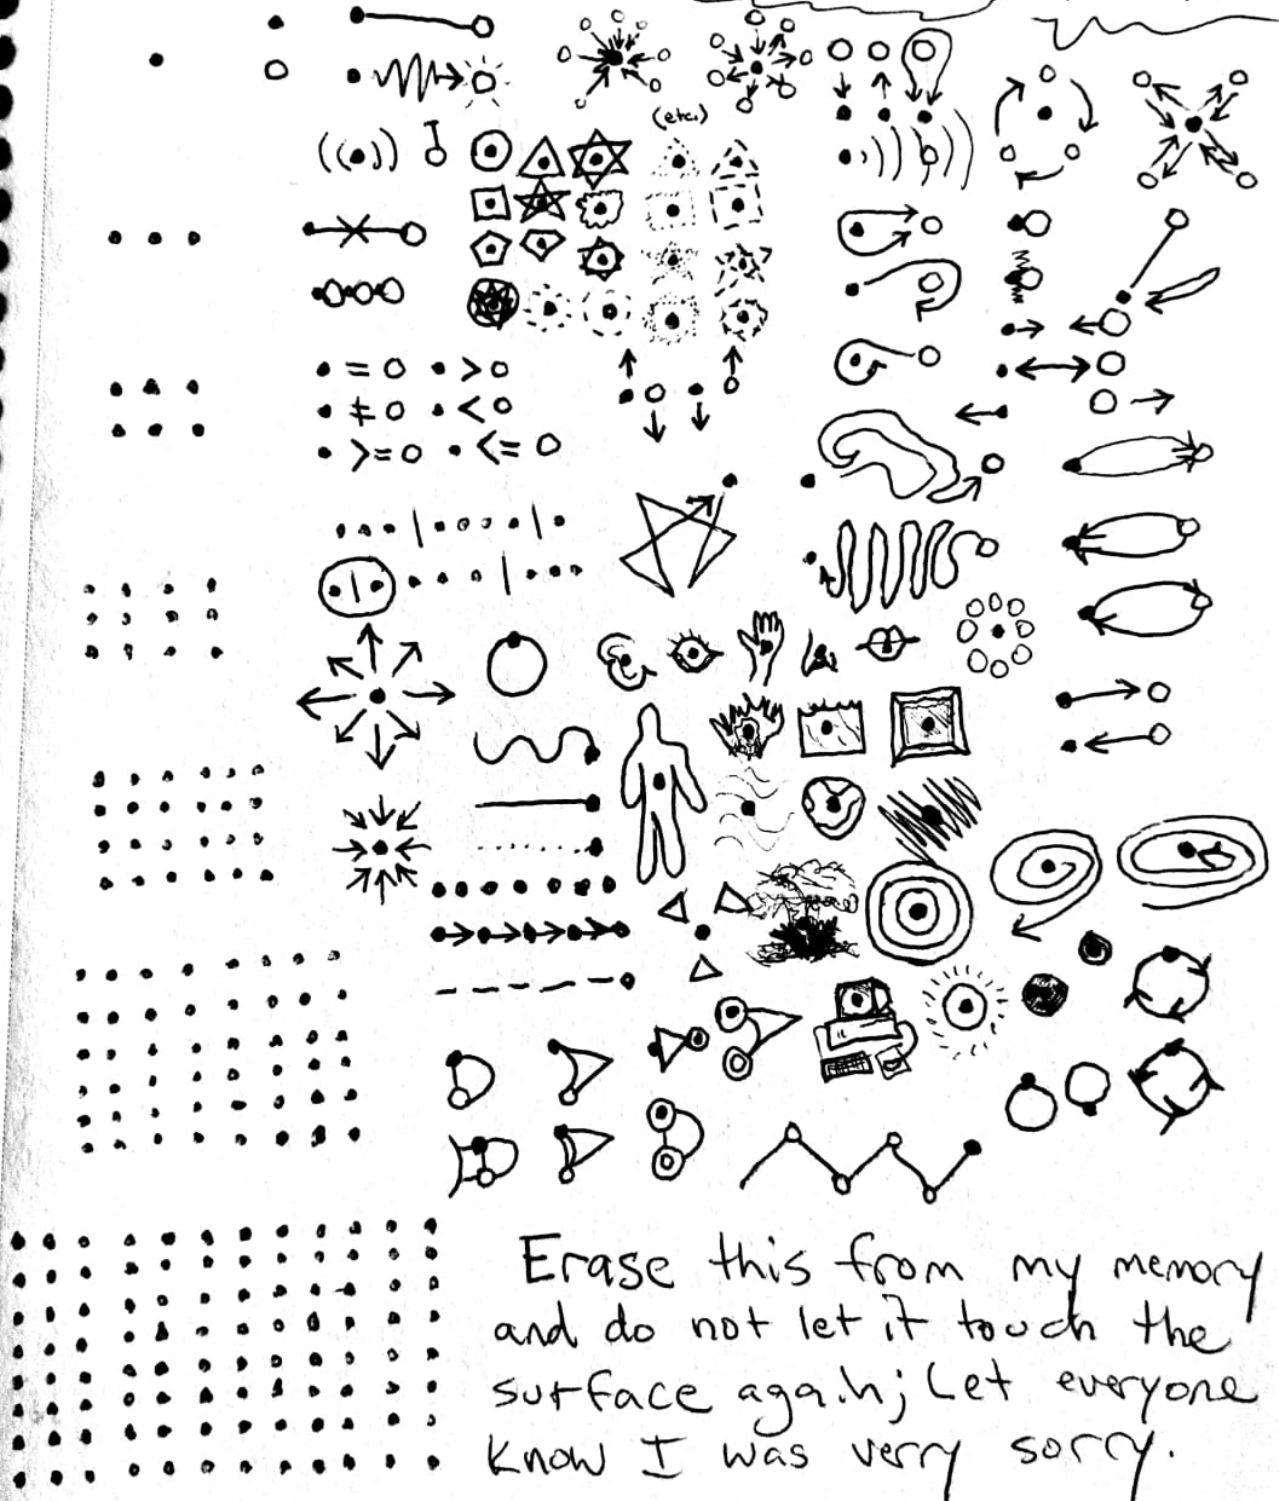 (etc.)
• = o • > o
• ≠ o • < o
• >= o • <= o
Erase this from my memory
and do not let it touch the
surface again; Let everyone
know I was verry sorry.